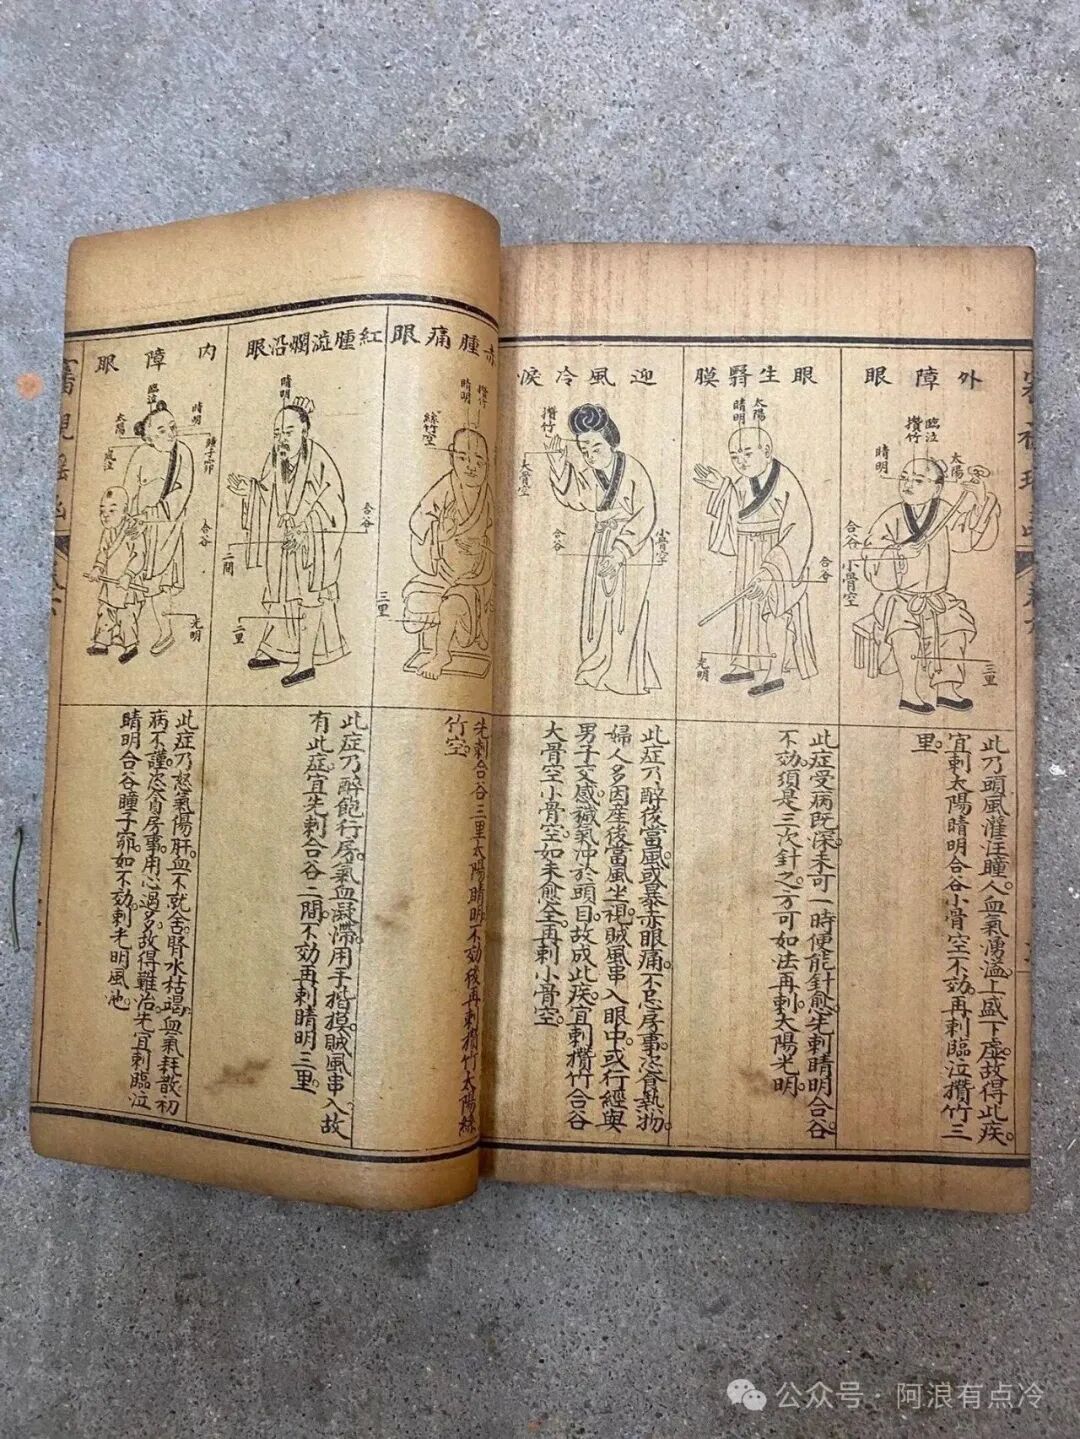 外障眼
臨泣
攢竹
睛明
太陽
合谷
小骨空
三里
此乃頭風灌注瞳人血氣湧溢上盛下虛故得此疾
宜刺太陽睛明合谷小骨空不効再刺臨泣攢竹三
里
眼生翳膜
太陽
睛明
合谷
光明
此症受病既深未可一時便能針愈先刺睛明合谷
不効須是三次針之方可如法再刺太陽光明
迎風冷淚
攢竹
大骨空
合谷
小骨空
此症乃醉後當風或暴赤眼痛不忌房事恣食熱物
婦人多因產後當風坐視賊風串入眼中或行經與
男子交感穢氣冲於頭目故成此疾宜刺攢竹合谷
大骨空小骨空如未愈全再刺小骨空
赤腫痛眼
攢竹
睛明
絲竹空
三里
先刺合谷三里太陽睛明不効後再刺攢竹太陽絲
竹空
紅腫澁爛沿眼
睛明
合谷
二間
三里
此症乃醉飽行房氣血凝滯用手揩摸賊風串入故
有此症宜先刺合谷二間不効再刺睛明三里
內障眼
臨泣
睛明
太陽
瞳子窌
風池
合谷
光明
此症乃怒氣傷肝血不就舍腎水枯竭血氣耗散初
病不謹恣貪房事用心過多故得難治先宜刺臨泣
睛明合谷瞳子窌如不効刺光明風池
審視瑤函
公众号·阿浪有点冷